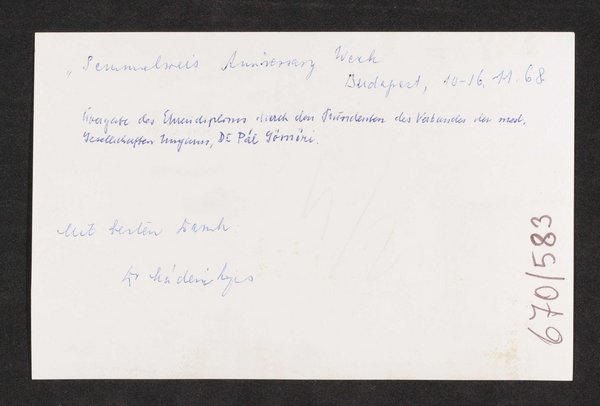 "Semmelweis Anniversary Week
Budapest, 10-16. 11. 68
des Ehrendiploms durch den Präsidenten des Verbandes der med.
Gesellschaften Ungarns, Dr Pál Gömöri.
Mit besten Dank
Dr
670/583